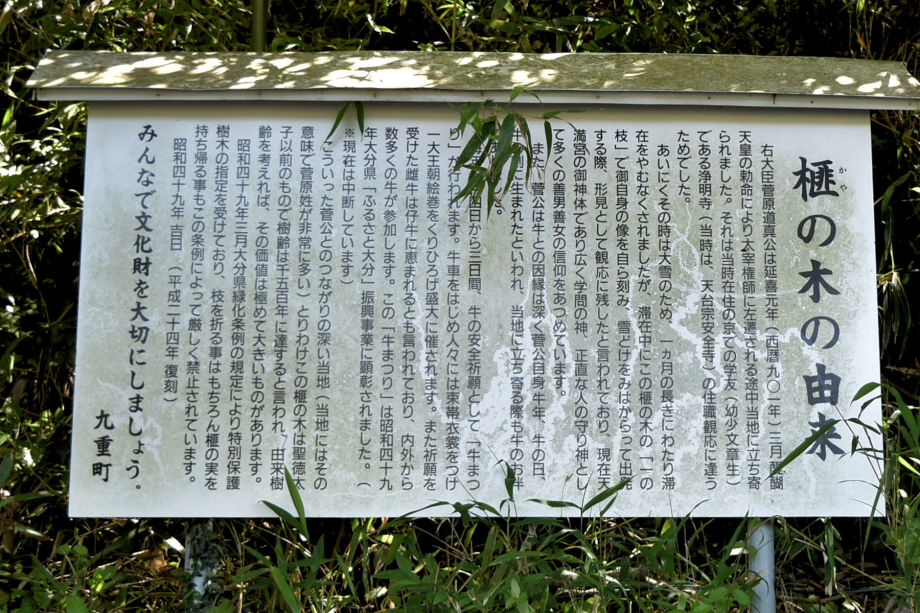 榧の木の由来
かや
右大臣菅原道真公は延喜元年（西暦九〇一年）三月醍醐
天皇の勅命により太宰権師に左遷される途中当地に立ち寄
られました。それは当時在住の京での学友（幼少文章生）
である浄明寺（当時は、天台宗安全寺）の住職観応に逢う
ためでした。
あいにくその時は大雪のため、一ヵ月の長きにわたり滞
在をやむなくされましたが、滞在中にこの榧の木の「一の
枝」で御自身の像を自ら刻み、雪どけをみはからって出発
する際、形見として観応に残したと言われており、現在天
満宮の御神体であり広く学問の神、正直な人の守り神とし
て多くの善男善女の信仰をあつめています。
また、菅公は牛との因縁は深く菅公自身牛年、牛の日、
牛の刻に生まれたといわれ、当地に立ち寄る際も牛のお伴
四日から三日間、牛の安全祈願として「牛まつ
り」が行われます。牛車をはじめ人々には束帯衣裳をつけ
一大王朝絵巻をくりひろげ盛大に催されます。また祈願を
受けた雌牛は仔牛に恵まれるとも言われており、内外から
数多くの牛が参加します。この「牛まつり」は昭和四十九
年大分県「ふるさと大分」振興事業に顕彰されました。（
※現在は中断しています）
こういった菅公とのつながりの深い当地（当地にはその
意味で菅原姓が非常に多い）とりわけこの榧の木は聖徳太
子以前のもので樹齢は千五百年に達すると言われ、由来樹
齢を考えれば、その価値は極めて大きいものがあります。
昭和四十九年三月大分県緑化条例の規定により特別保護
樹木の指定を受けており、枝を折る事はもちろん榧の実を
持ち帰る事もこの条例によって厳しく禁止されています。
昭和四十九年吉日（平成二十四年 復刻）
みんなで文化財を大切にしましょう。
九重町